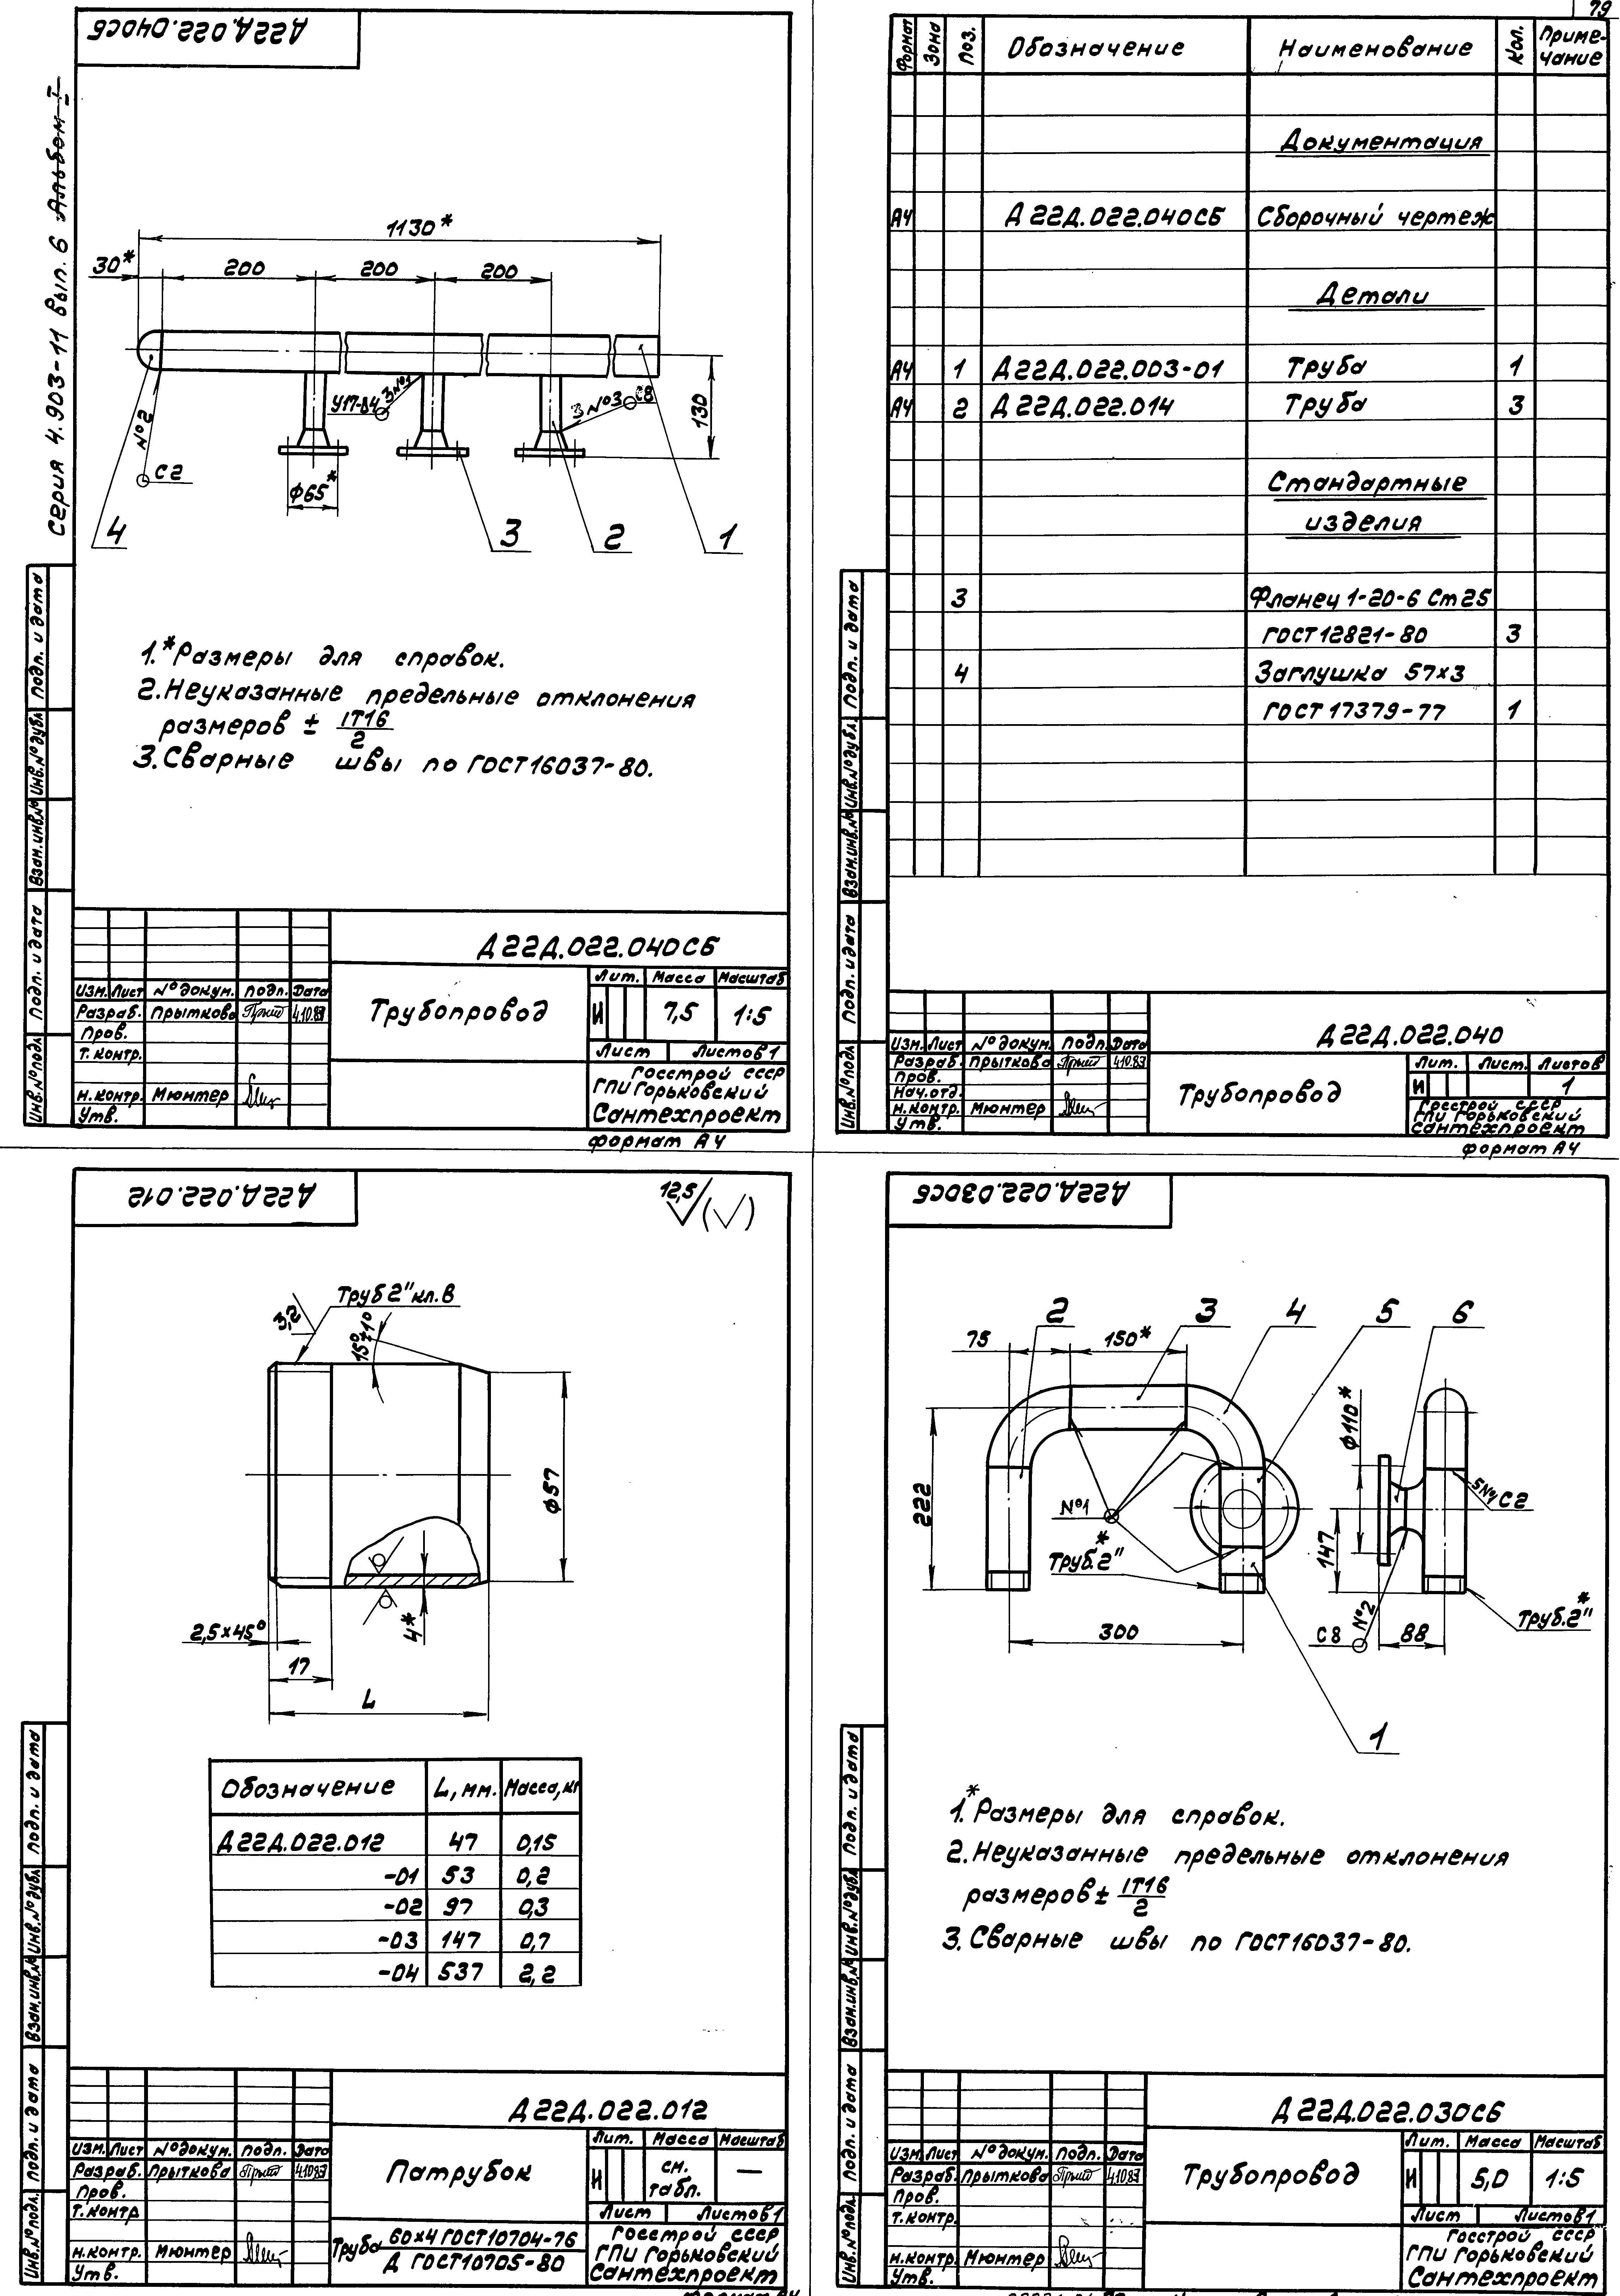 Д22Д.022.040СБ
Серия 4.903-11 Вып. 6 Альбом I
1130*
30*
200
200
200
У17-Δ4
3 №1
3 №3
С8
130
№2
С2
ϕ65*
4
3
2
1
1.*Размеры для справок.
2. Неуказанные предельные отклонения
размеров ± IT16/2
3. Сварные швы по ГОСТ 16037-80.
Подп. и дата
Инв.№дубл.
Взам.инв.№
Подп. и дата
Инв.№подл.
Д22Д.022.040СБ
Изм. Лист №докум. Подп. Дата
Разраб. Прыткова 4.10.83
Пров.
Т.контр.
Н.контр. Мюнтер
Утв.
Трубопровод
Лит. Масса Масштаб
И 7,5 1:5
Лист Листов 1
Госстрой СССР
ГПИ Горьковский
Сантехпроект
формат А4
79
Формат Зона Поз. Обозначение Наименование Кол. Приме-
чание
Документация
А4 Д22Д.022.040СБ Сборочный чертеж
Детали
А4 1 Д22Д.022.003-01 Труба 1
А4 2 Д22Д.022.014 Труба 3
Стандартные
изделия
3 Фланец 1-20-6 Ст25
ГОСТ 12821-80 3
4 Заглушка 57×3
ГОСТ 17379-77 1
Подп. и дата
Инв.№дубл.
Взам.инв.№
Подп. и дата
Инв.№подл.
Д22Д.022.040
Изм. Лист №докум. Подп. Дата
Разраб. Прыткова 4.10.83
Пров.
Нач.отд.
Н.контр. Мюнтер
Утв.
Трубопровод
Лит. Лист. Листов
И 1
Госстрой СССР
ГПИ Горьковский
Сантехпроект
формат А4
Д22Д.022.012
12,5 (√)
Труб 2" кл. В
3,2
15°±1°
ϕ57
4*
2,5×45°
17
L
Обозначение L, мм. Масса, кг
Д22Д.022.012 47 0,15
-01 53 0,2
-02 97 0,3
-03 147 0,7
-04 537 2,2
Подп. и дата
Инв.№дубл.
Взам.инв.№
Подп. и дата
Инв.№подл.
Д22Д.022.012
Изм. Лист №докум. Подп. Дата
Разраб. Прыткова 4.10.83
Пров.
Т.контр
Н.контр. Мюнтер
Утв.
Патрубок
Лит. Масса Масштаб
И см. табл. —
Лист Листов 1
Труба 60×4 ГОСТ 10704-76
Д ГОСТ 10705-80
Госстрой СССР
ГПИ Горьковский
Сантехпроект
формат А4
Д22Д.022.030СБ
2
3
4
5
6
75
150*
ϕ110*
222
№1
Труб. 2"*
5 №4 С2
147
300
С8
№2
88
Труб. 2"*
1
1.*Размеры для справок.
2. Неуказанные предельные отклонения
размеров ± IT16/2
3. Сварные швы по ГОСТ 16037-80.
Подп. и дата
Инв.№дубл.
Взам.инв.№
Подп. и дата
Инв.№подл.
Д22Д.022.030СБ
Изм. Лист №докум. Подп. Дата
Разраб. Прыткова 4.10.83
Пров.
Т.контр.
Н.контр. Мюнтер
Утв.
Трубопровод
Лит. Масса Масштаб
И 5,0 1:5
Лист Листов 1
Госстрой СССР
ГПИ Горьковский
Сантехпроект